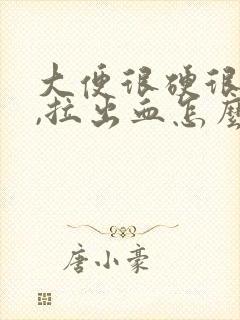 大便很硬很
,拉出血怎麼
唐小豪